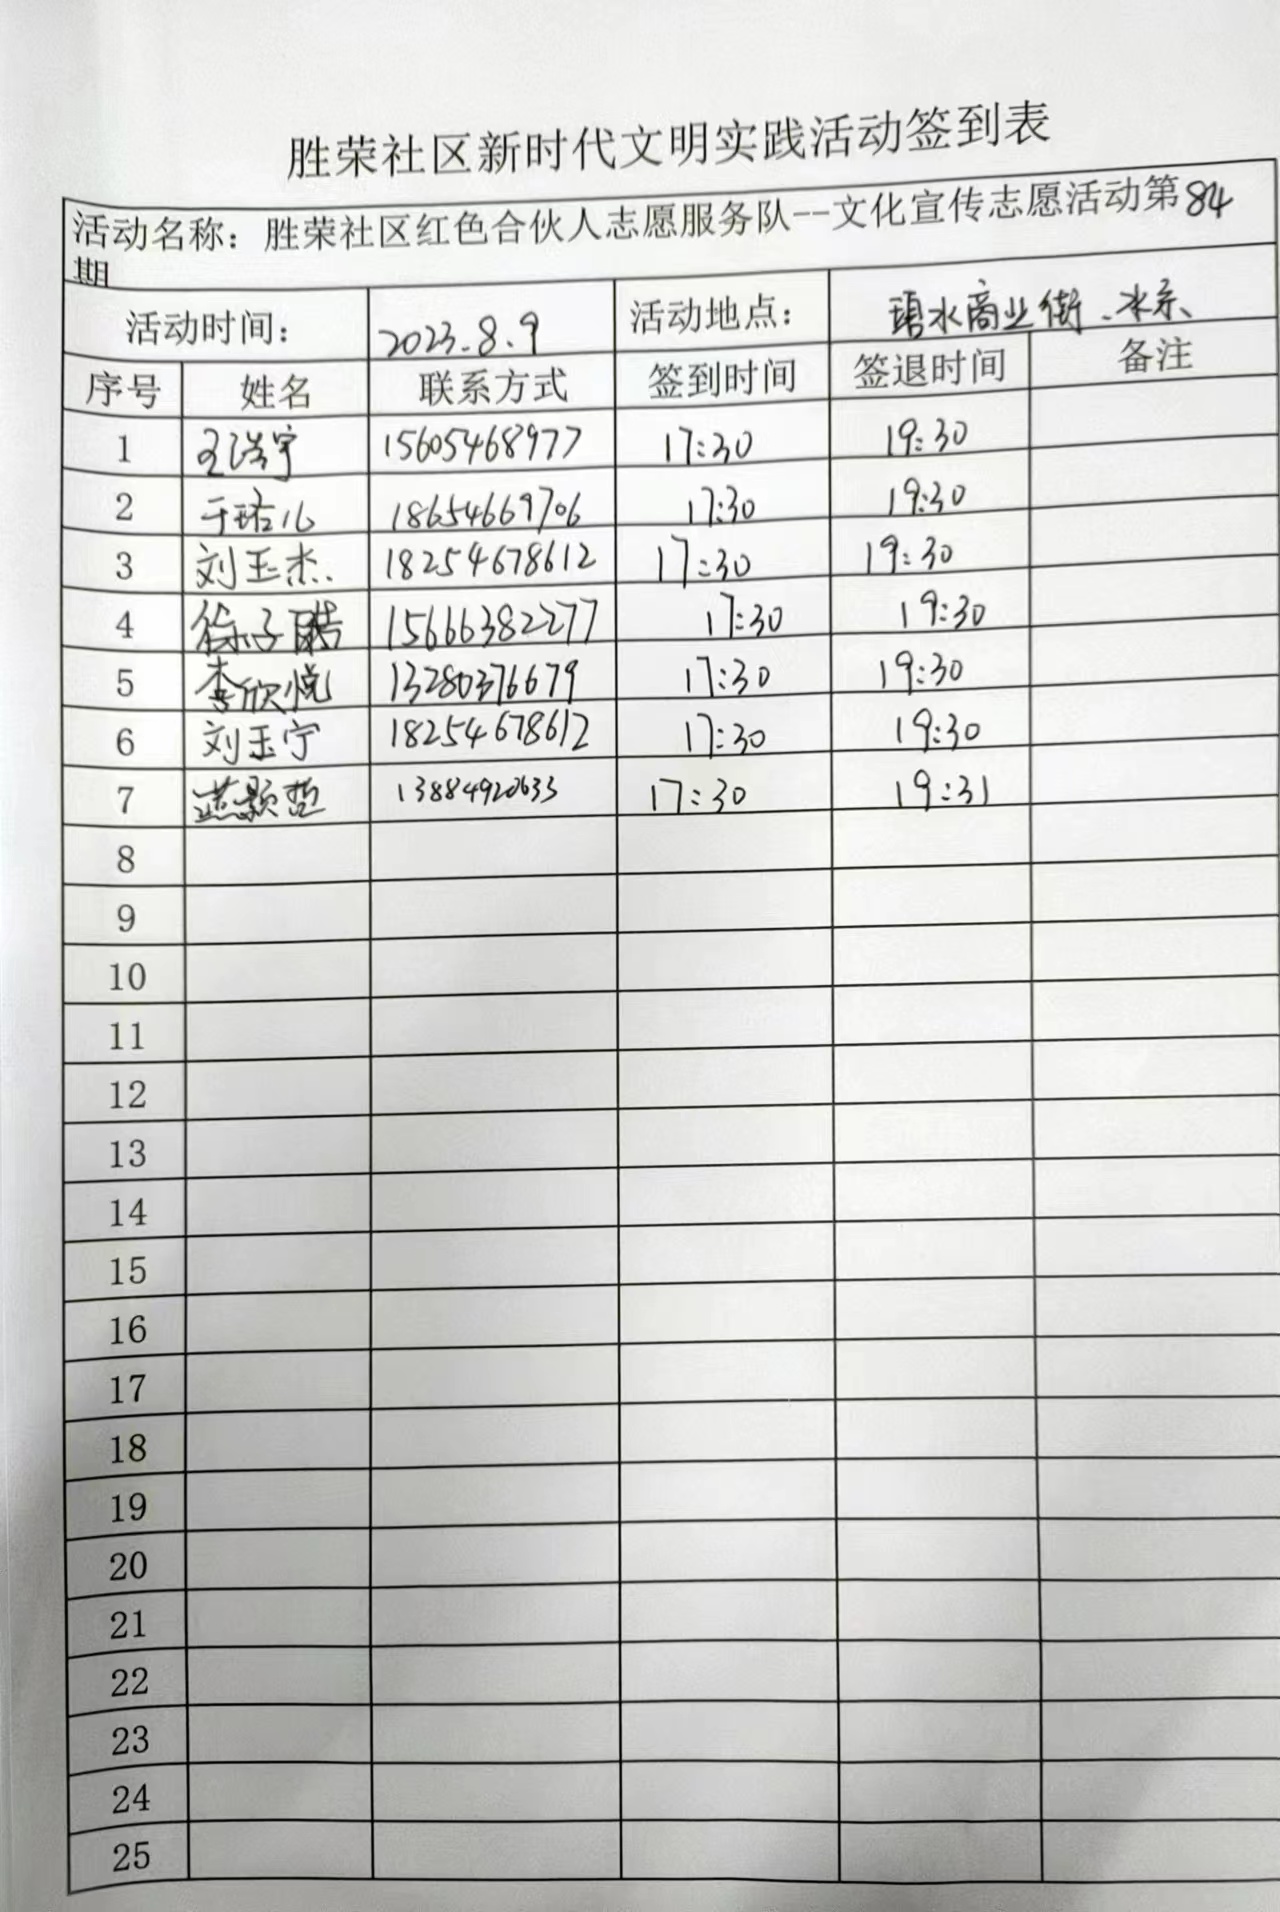 胜荣社区新时代文明实践活动签到表
活动名称：胜荣社区红色合伙人志愿服务队--文化宣传志愿活动第84
期
活动时间： 2023.8.9 活动地点： 碧水商业街、
序号 姓名 联系方式 签到时间 签退时间 备注
1 王浩宇 15605468977 17:30 19:30
2 于珞儿 18654669706 17:30 19:30
3 刘玉杰 18254678612 17:30 19:30
4 徐子皓 15666382277 17:30 19:30
5 李欣悦 13280376679 17:30 19:30
6 刘玉宁 18254678612 17:30 19:30
7 13884920633 17:30 19:31
8
9
10
11
12
13
14
15
16
17
18
19
20
21
22
23
24
25